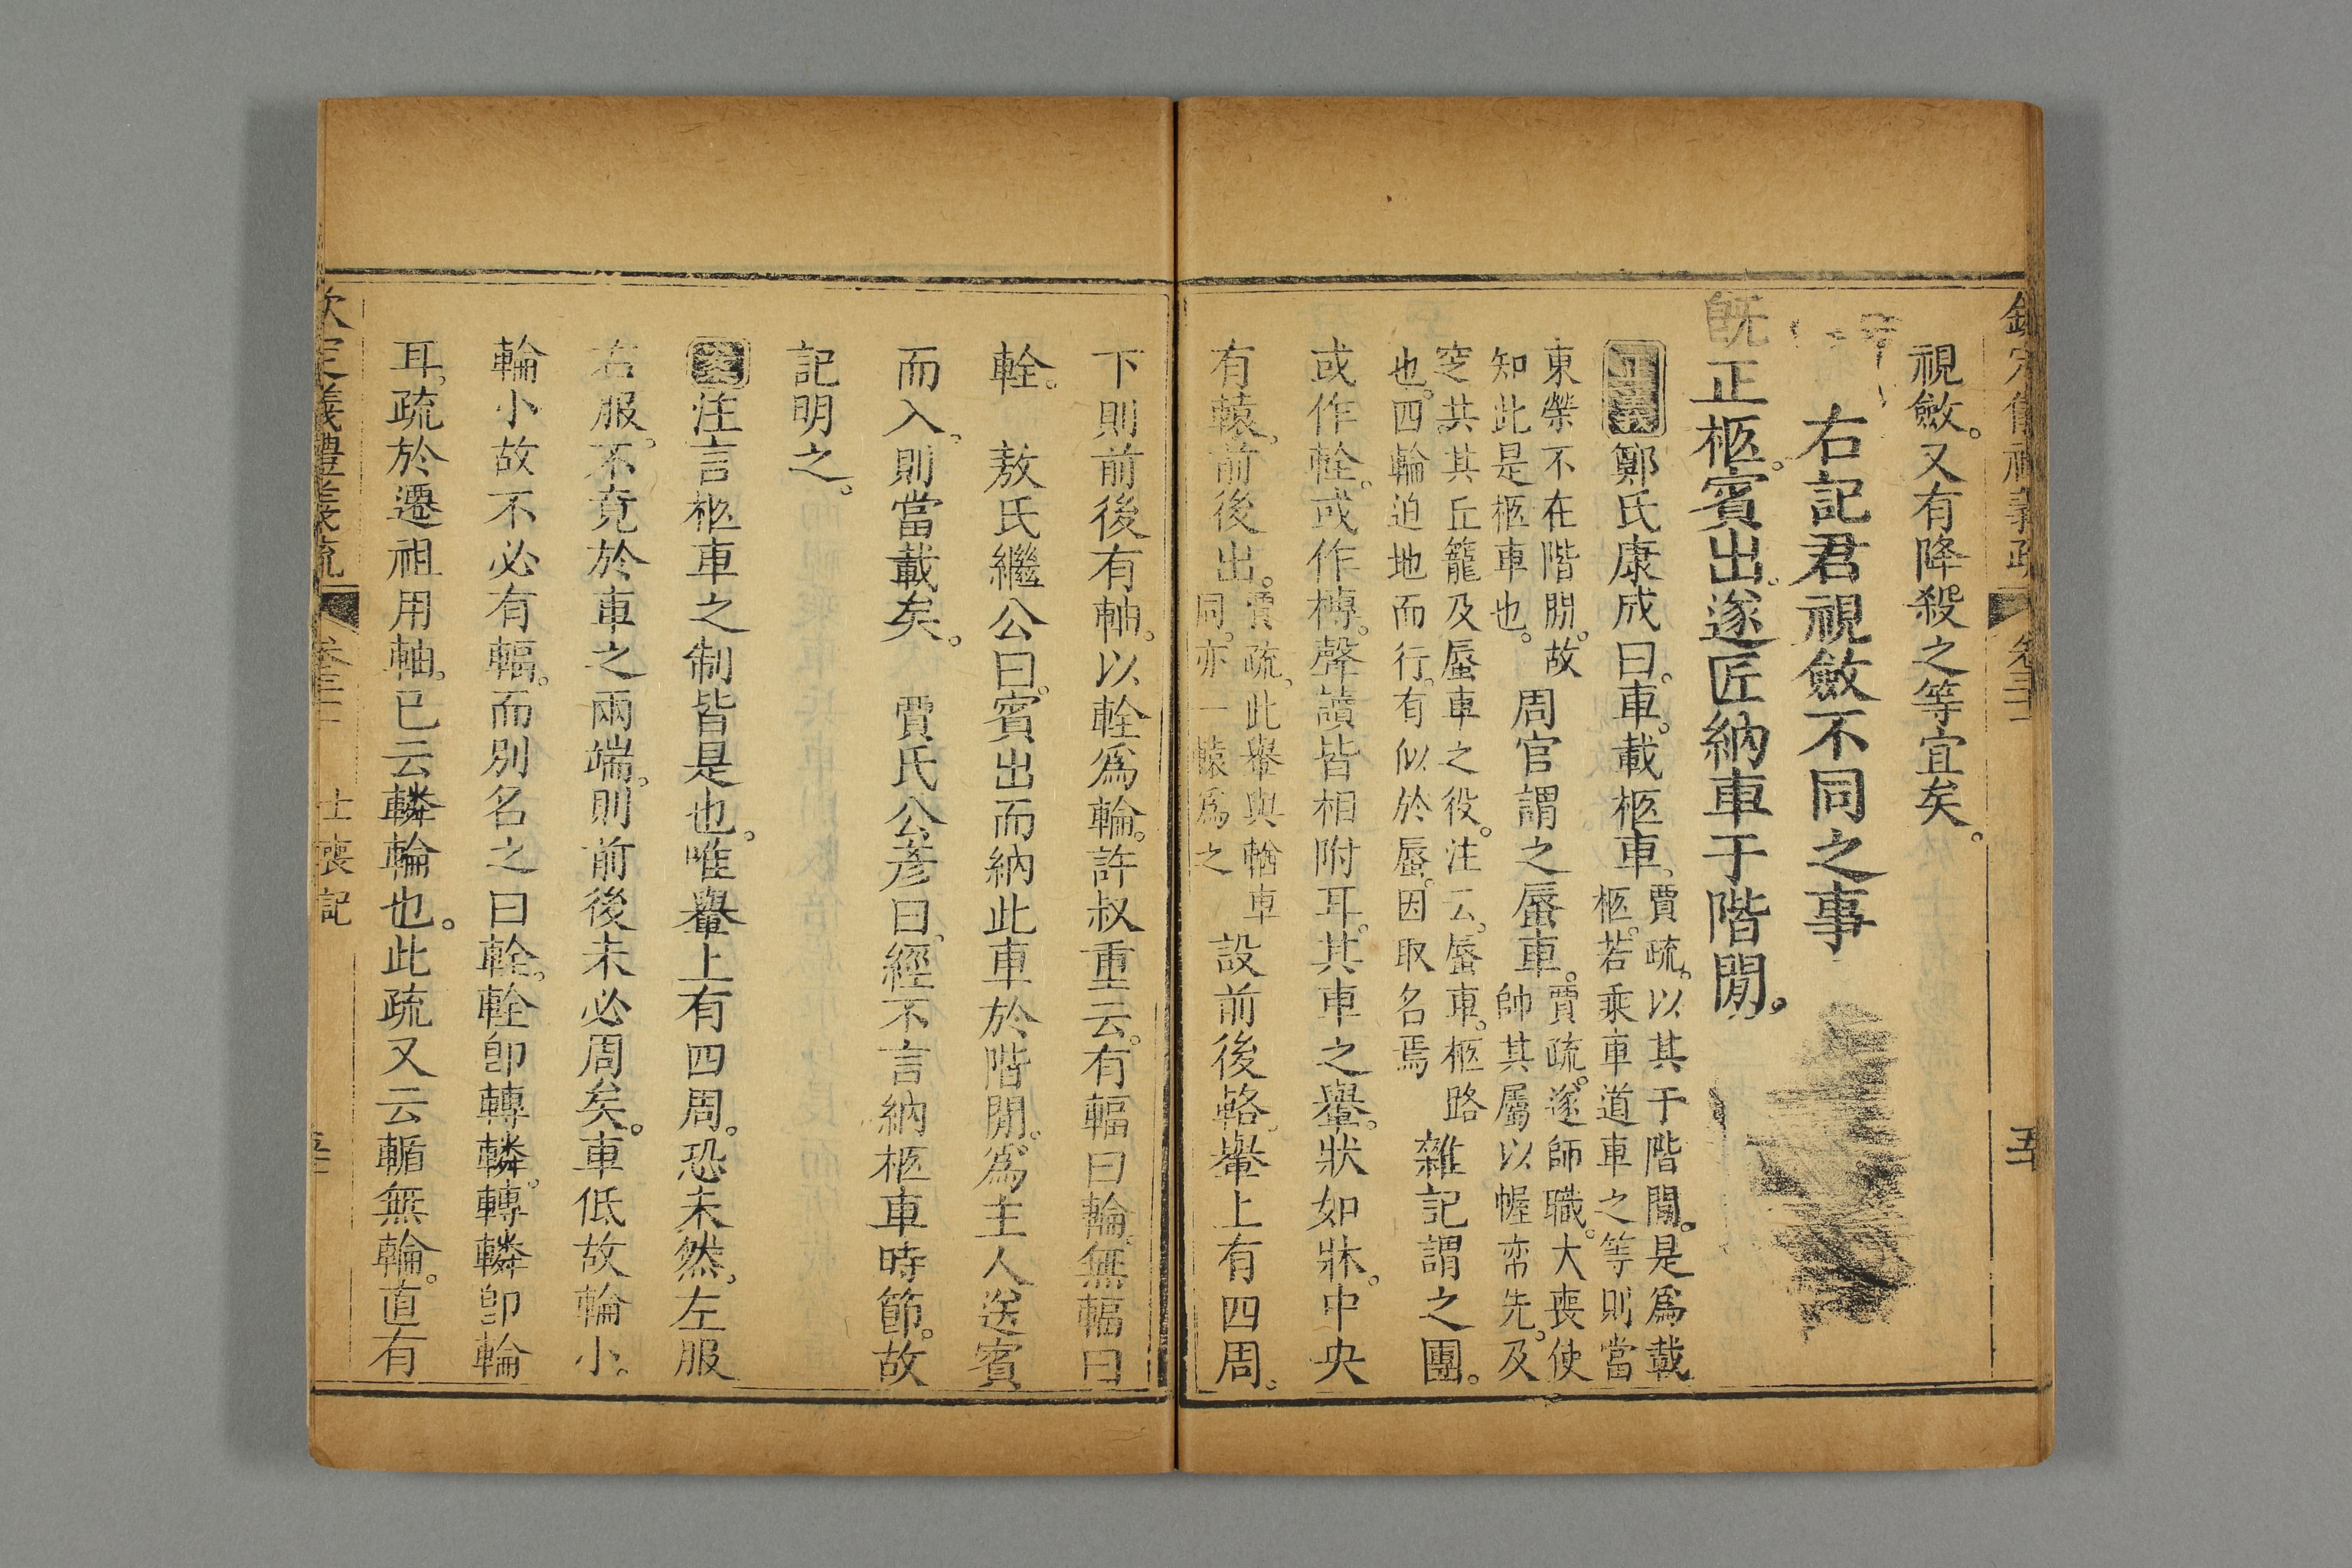 視斂。又有降殺之等宜矣。
右記君視斂不同之事
既正柩。賓出。遂匠納車于階閒。
正義鄭氏康成曰。車。載柩車。賈疏。以其于階閒。是爲載
柩。若乘車道車之等則當
東榮不在階閒。故
知此是柩車也。
周官謂之蜃車。賈疏。遂師職。大喪使
帥其屬以幄帟先。及
窆共其丘籠及蜃車之役。注云。蜃車。柩路
也。四輪迫地而行。有似於蜃。因取名焉
雜記謂之團。
或作輇。或作槫。聲讀皆相附耳。其車之轝。狀如牀。中央
有轅。前後出。賈疏。此轝與輴車
同。亦一轅爲之
設前後輅。轝上有四周。
下則前後有軸。以輇爲輪。許叔重云。有輻曰輪。無輻曰
輇。　敖氏繼公曰。賓出而納此車於階閒。爲主人送賓
而入。則當載矣。　賈氏公彥曰。經不言納柩車時節。故
記明之。
案注言柩車之制皆是也。唯轝上有四周。恐未然。左服
右服。不竟於車之兩端。則前後未必周矣。車低故輪小。
輪小故不必有輻。而別名之曰輇。輇卽轉轔。轉轔卽輪
耳。疏於遷祖用軸。已云轔輪也。此疏又云輴無輪。直有
欽定儀禮義疏
士喪記